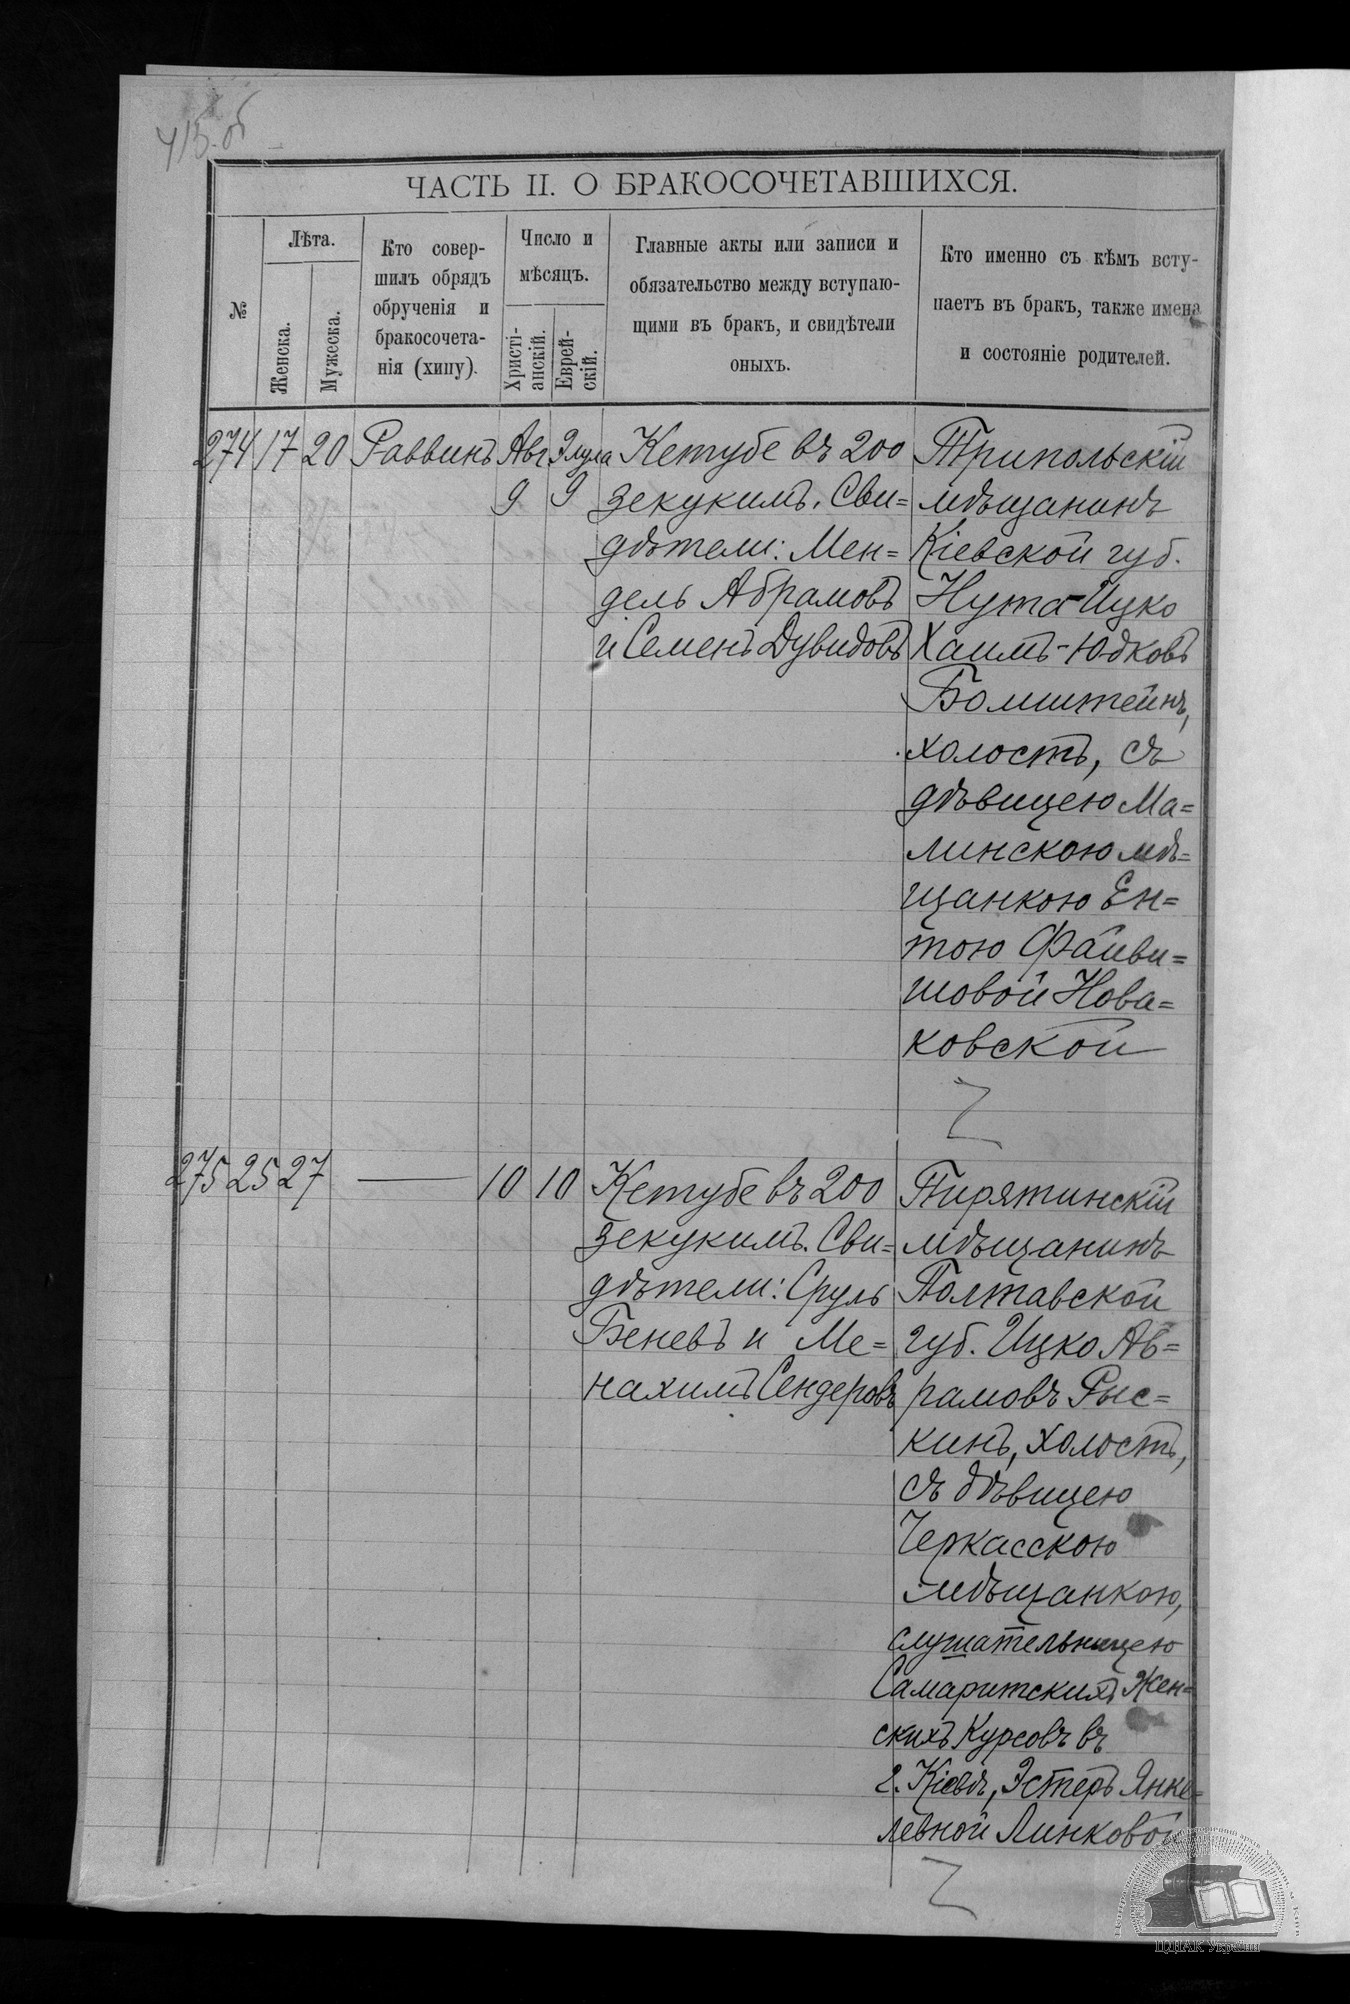 415 об
ЧАСТЬ II. О БРАКОСОЧЕТАВШИХСЯ.
№
Лѣта.
Женска.
Мужеска.
Кто совер-
шилъ обрядъ
обрученія и
бракосочета-
нія (хипу).
Число и
мѣсяцъ.
Христі-
анскій.
Еврей-
скій.
Главные акты или записи и
обязательство между вступаю-
щими въ бракъ, и свидѣтели
оныхъ.
Кто именно съ кѣмъ всту-
паетъ въ бракъ, также имена
и состояніе родителей.
274 17 20 Раввинъ Авг Элула
9 9
Кетубе въ 200
зекукимъ. Сви=
дѣтели: Мен=
дель Абрамовъ
и Семенъ Дувидовъ
Трипольскій
мѣщанинъ
Кіевской губ.
Нута-Ицко
Хаимъ-Юдковъ
Бомштейнъ,
холостъ, съ
дѣвицею Ма=
линскою мѣ=
щанкою Ен=
тою Файви=
шовой Нова=
ковской
275 25 27 — 10 10
Кетубе въ 200
зекукимъ. Сви=
дѣтели: Сруль
Беневъ и Ме=
нахимъ Сендеровъ
Пирятинскій
мѣщанинъ
Полтавской
губ. Ицко Ав=
рамовъ Рыс=
кинъ, холостъ,
съ дѣвицею
Черкасскою
мѣщанкою,
слушательницею
Самаритскихъ Жен=
скихъ Курсовъ въ
г. Кіевѣ, Эстеръ Янке=
левной Линковой
ЦДІАК України